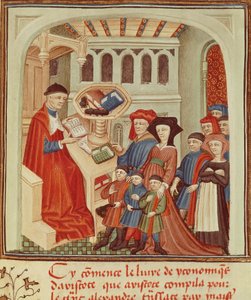 Cy cõmence le liure de yconomiq̃
daristote que aristote compila pour
le roy alexandre